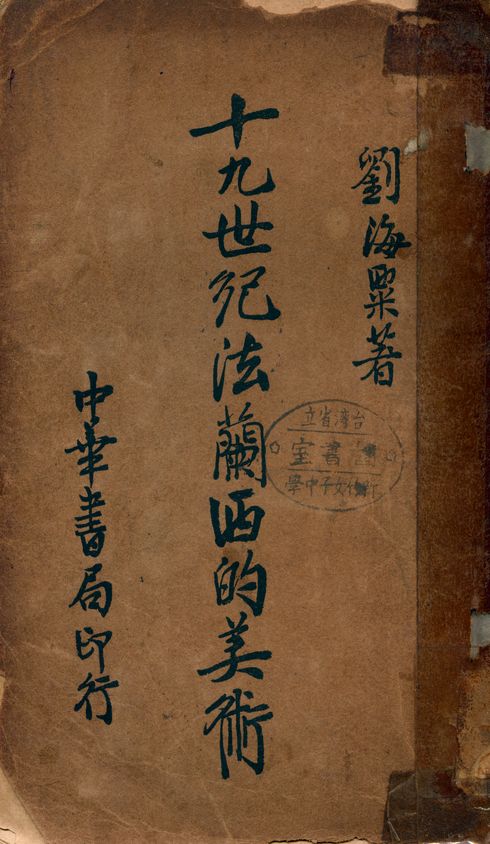 劉海粟著
十九世紀法蘭西的美術
中華書局印行
台灣省立
圖書室
化女子中學